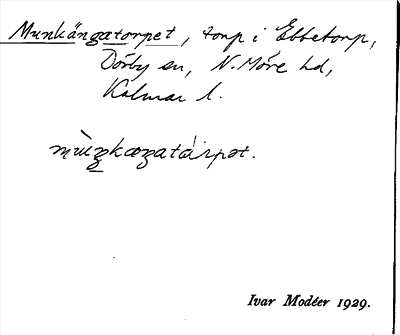 Munkängatorpet, torp i Ebbetorp,
Dörby sn, N. Möre hd,
Kalmar l.
mùŋkæŋatårpət.
Ivar Modéer 1929.